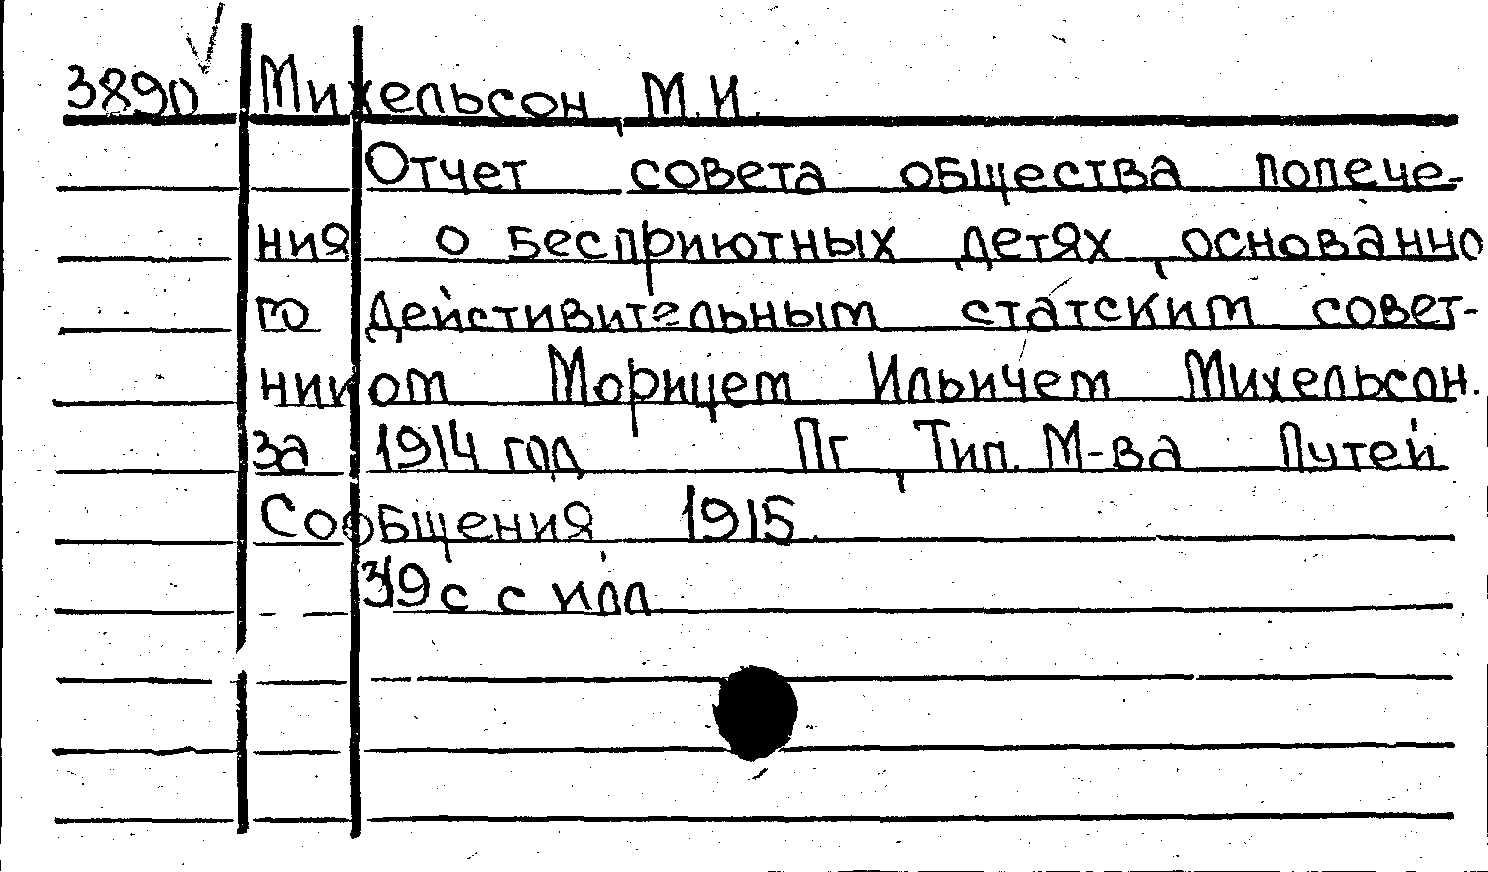 3890 Михельсон, М.И.
Отчет совета общества попече-
ния о бесприютных детях, основанно
го действительным статским совет-
ником Морицем Ильичем Михельсон.
за 1914 год Пг, Тип. М-ва Путей
Сообщения, 1915.
39 с с илл